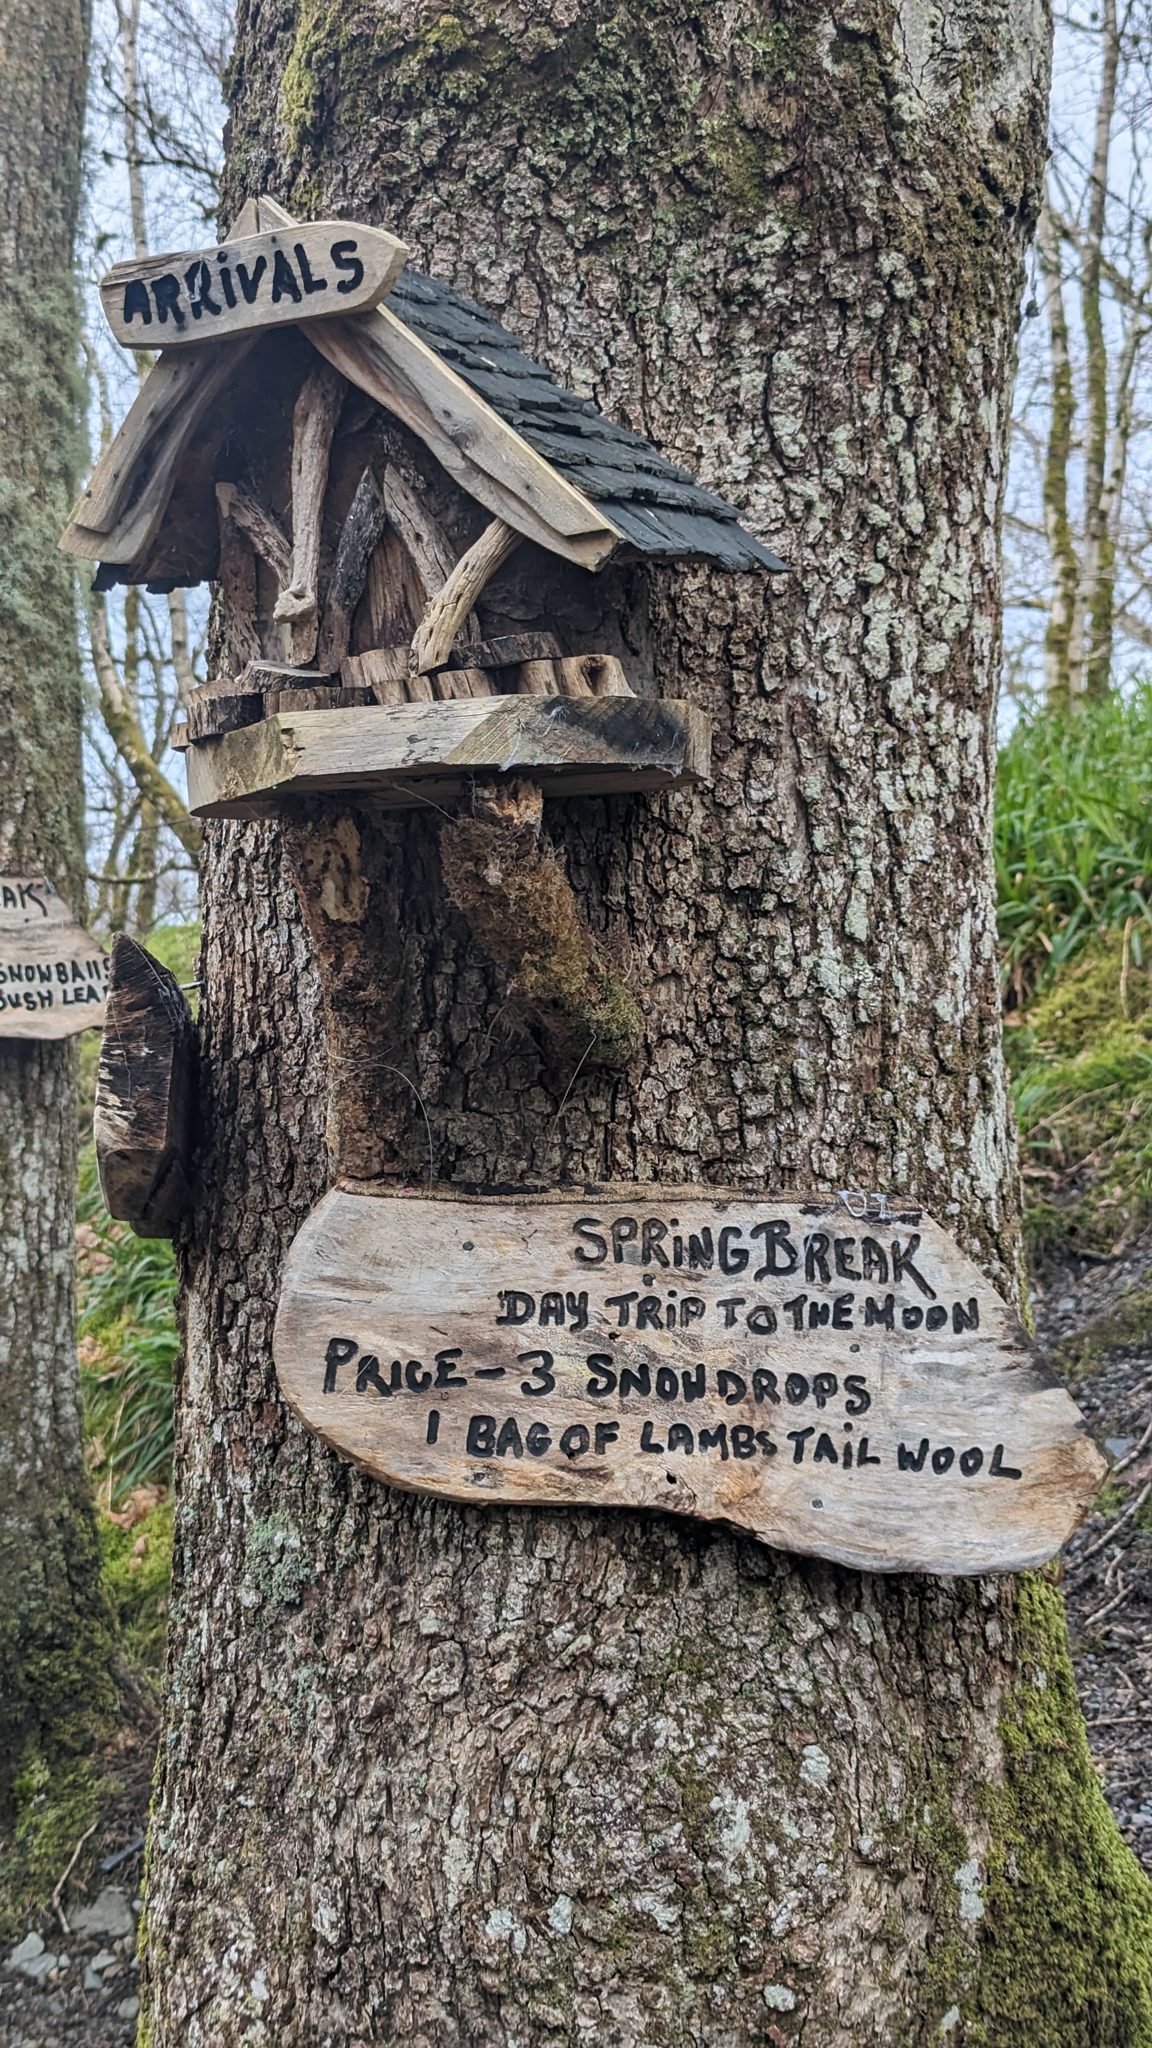 ARRiVALS
EAK
SNOWBAllS
BUSH LEA
SPRiNG BREAK
DAY TRiP TO THE MOON
PRICE - 3 SNOWDROPS
1 BAG OF LAMBS TAiL WOOL